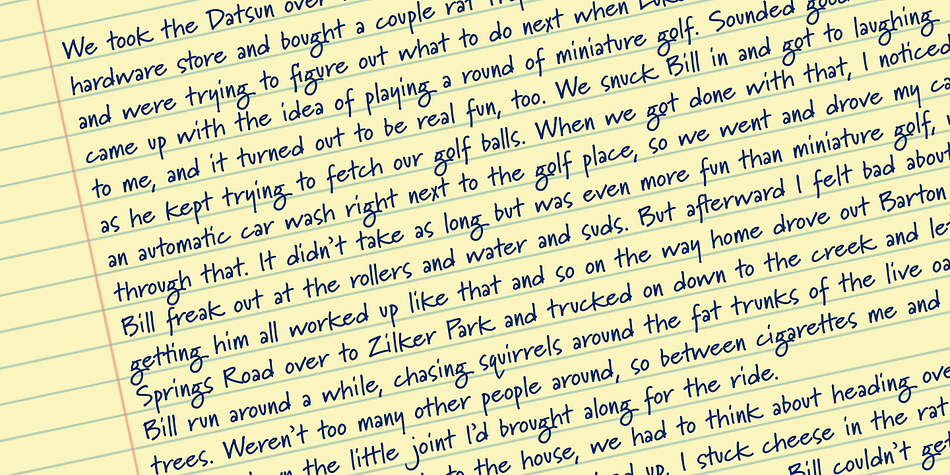 We took the Datsun over
hardware store and bought a couple rat
and were trying to figure out what to do next when
came up with the idea of playing a round of miniature golf. Sounded
to me, and it turned out to be real fun, too. We snuck Bill in and got to laughing
as he kept trying to fetch our golf balls. When we got done with that, I noticed
an automatic car wash right next to the golf place, so we went and drove my
through that. It didn't take as long but was even more fun than miniature golf,
Bill freak out at the rollers and water and suds. But afterward I felt bad about
getting him all worked up like that and so on the way home drove out Barton
Springs Road over to Zilker Park and trucked on down to the creek and
Bill run around a while, chasing squirrels around the fat trunks of the live
trees. Weren't too many other people around, so between cigarettes me and
the little joint I'd brought along for the ride.
to the house, we had to think about heading
up. I stuck cheese in the rat
Bill couldn't